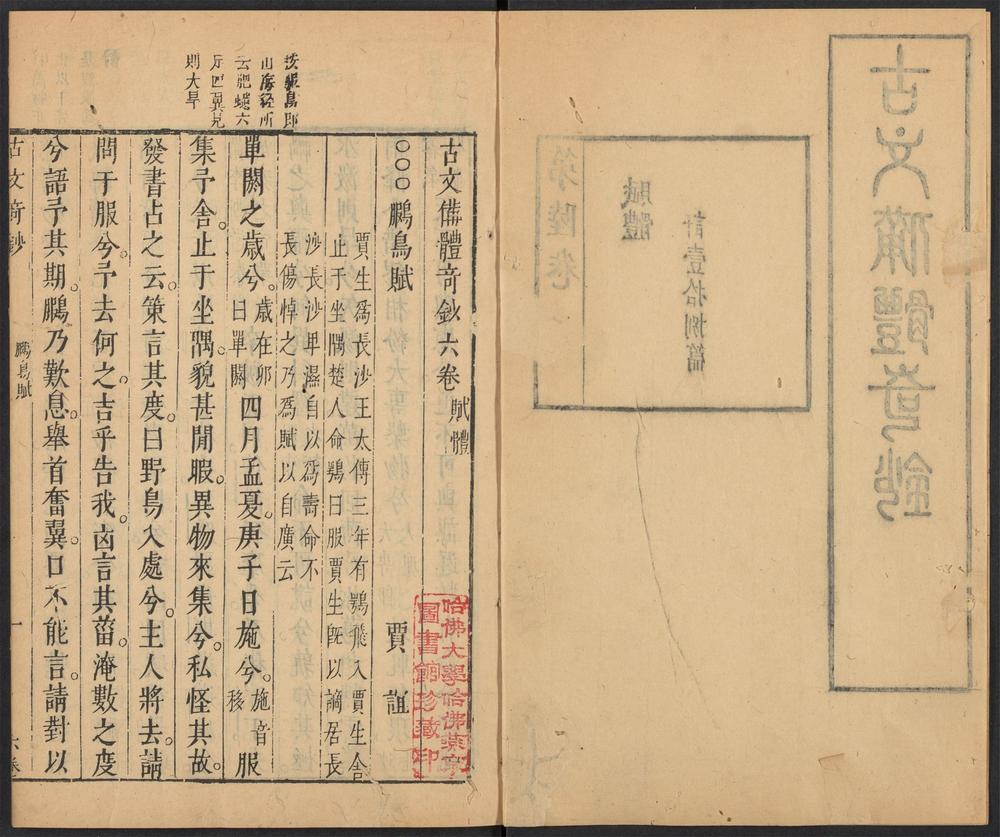 古文備體奇鈔
第陸卷
賦體
計壹拾捌篇
按服鳥即
山海經所
云肥䗤六
足四翼見
則大旱
古文備體奇鈔六卷 賦體
○○○鵩鳥賦 賈誼
賈生爲長沙王太傅三年有鴞飛入賈生舍
止于坐隅楚人命鴞曰服賈生旣以謫居長
沙長沙卑濕自以爲壽命不
長傷悼之乃爲賦以自廣云
單閼之歲兮。歲在卯曰單閼四月孟夏。庚子日施兮。施音移服
集予舍。止于坐隅。貌甚閒暇。異物來集兮。私怪其故。
發書占之云。策言其度。曰野鳥入處兮。主人將去。請
問于服兮。予去何之。吉乎告我。凶言其菑。淹數之度
兮語予其期。鵩乃歎息。舉首奮翼。口不能言。請對以
古文奇鈔 鵩鳥賦 一 六卷
哈佛大學哈佛燕京
圖書館珍藏印